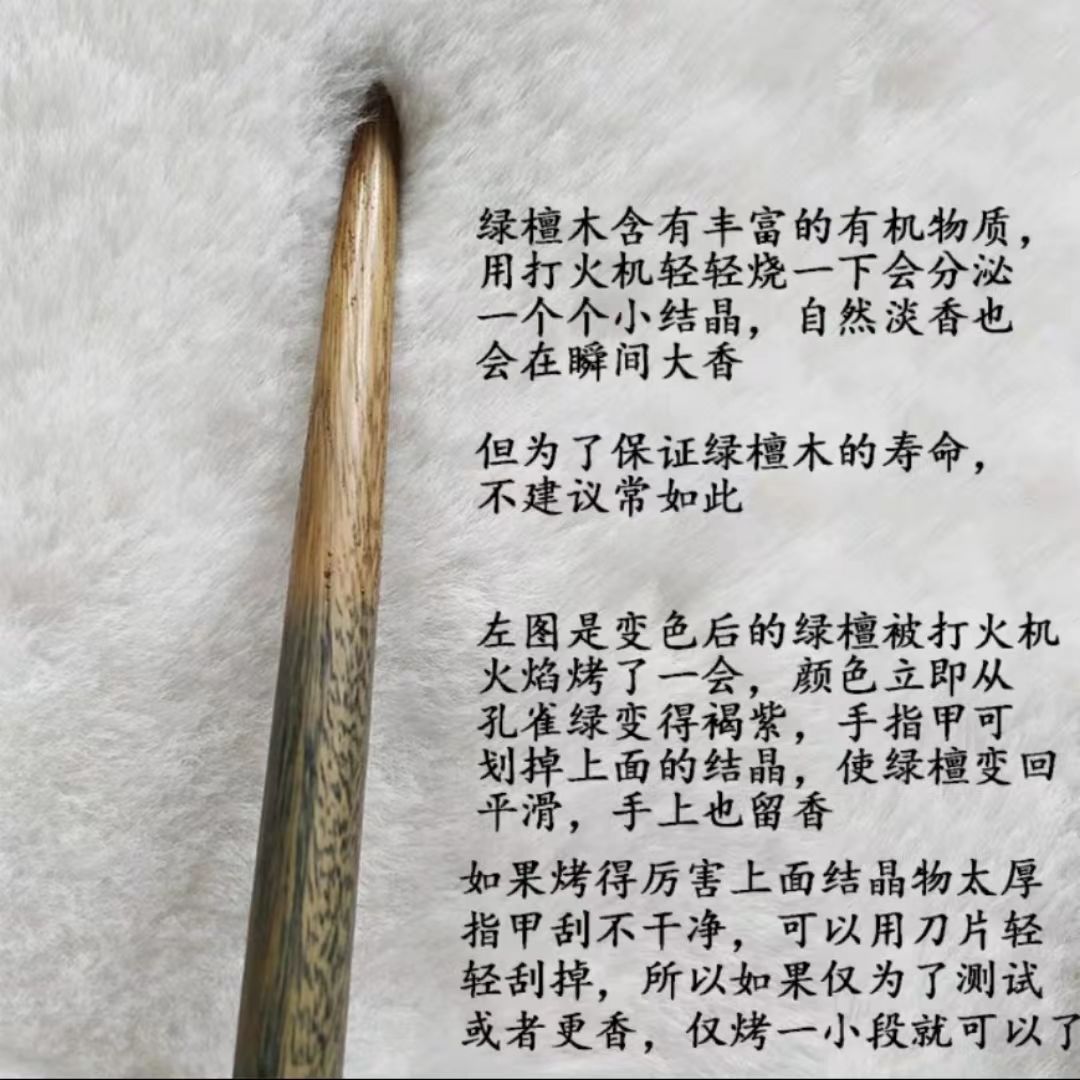 绿檀木含有丰富的有机物质，
用打火机轻轻烧一下会分泌
一个个小结晶，自然淡香也
会在瞬间大香
但为了保证绿檀木的寿命，
不建议常如此
左图是变色后的绿檀被打火机
火焰烤了一会，颜色立即从
孔雀绿变得褐紫，手指甲可
划掉上面的结晶，使绿檀变回
平滑，手上也留香
如果烤得厉害上面结晶物太厚
指甲刮不干净，可以用刀片轻
轻刮掉，所以如果仅为了测试
或者更香，仅烤一小段就可以了